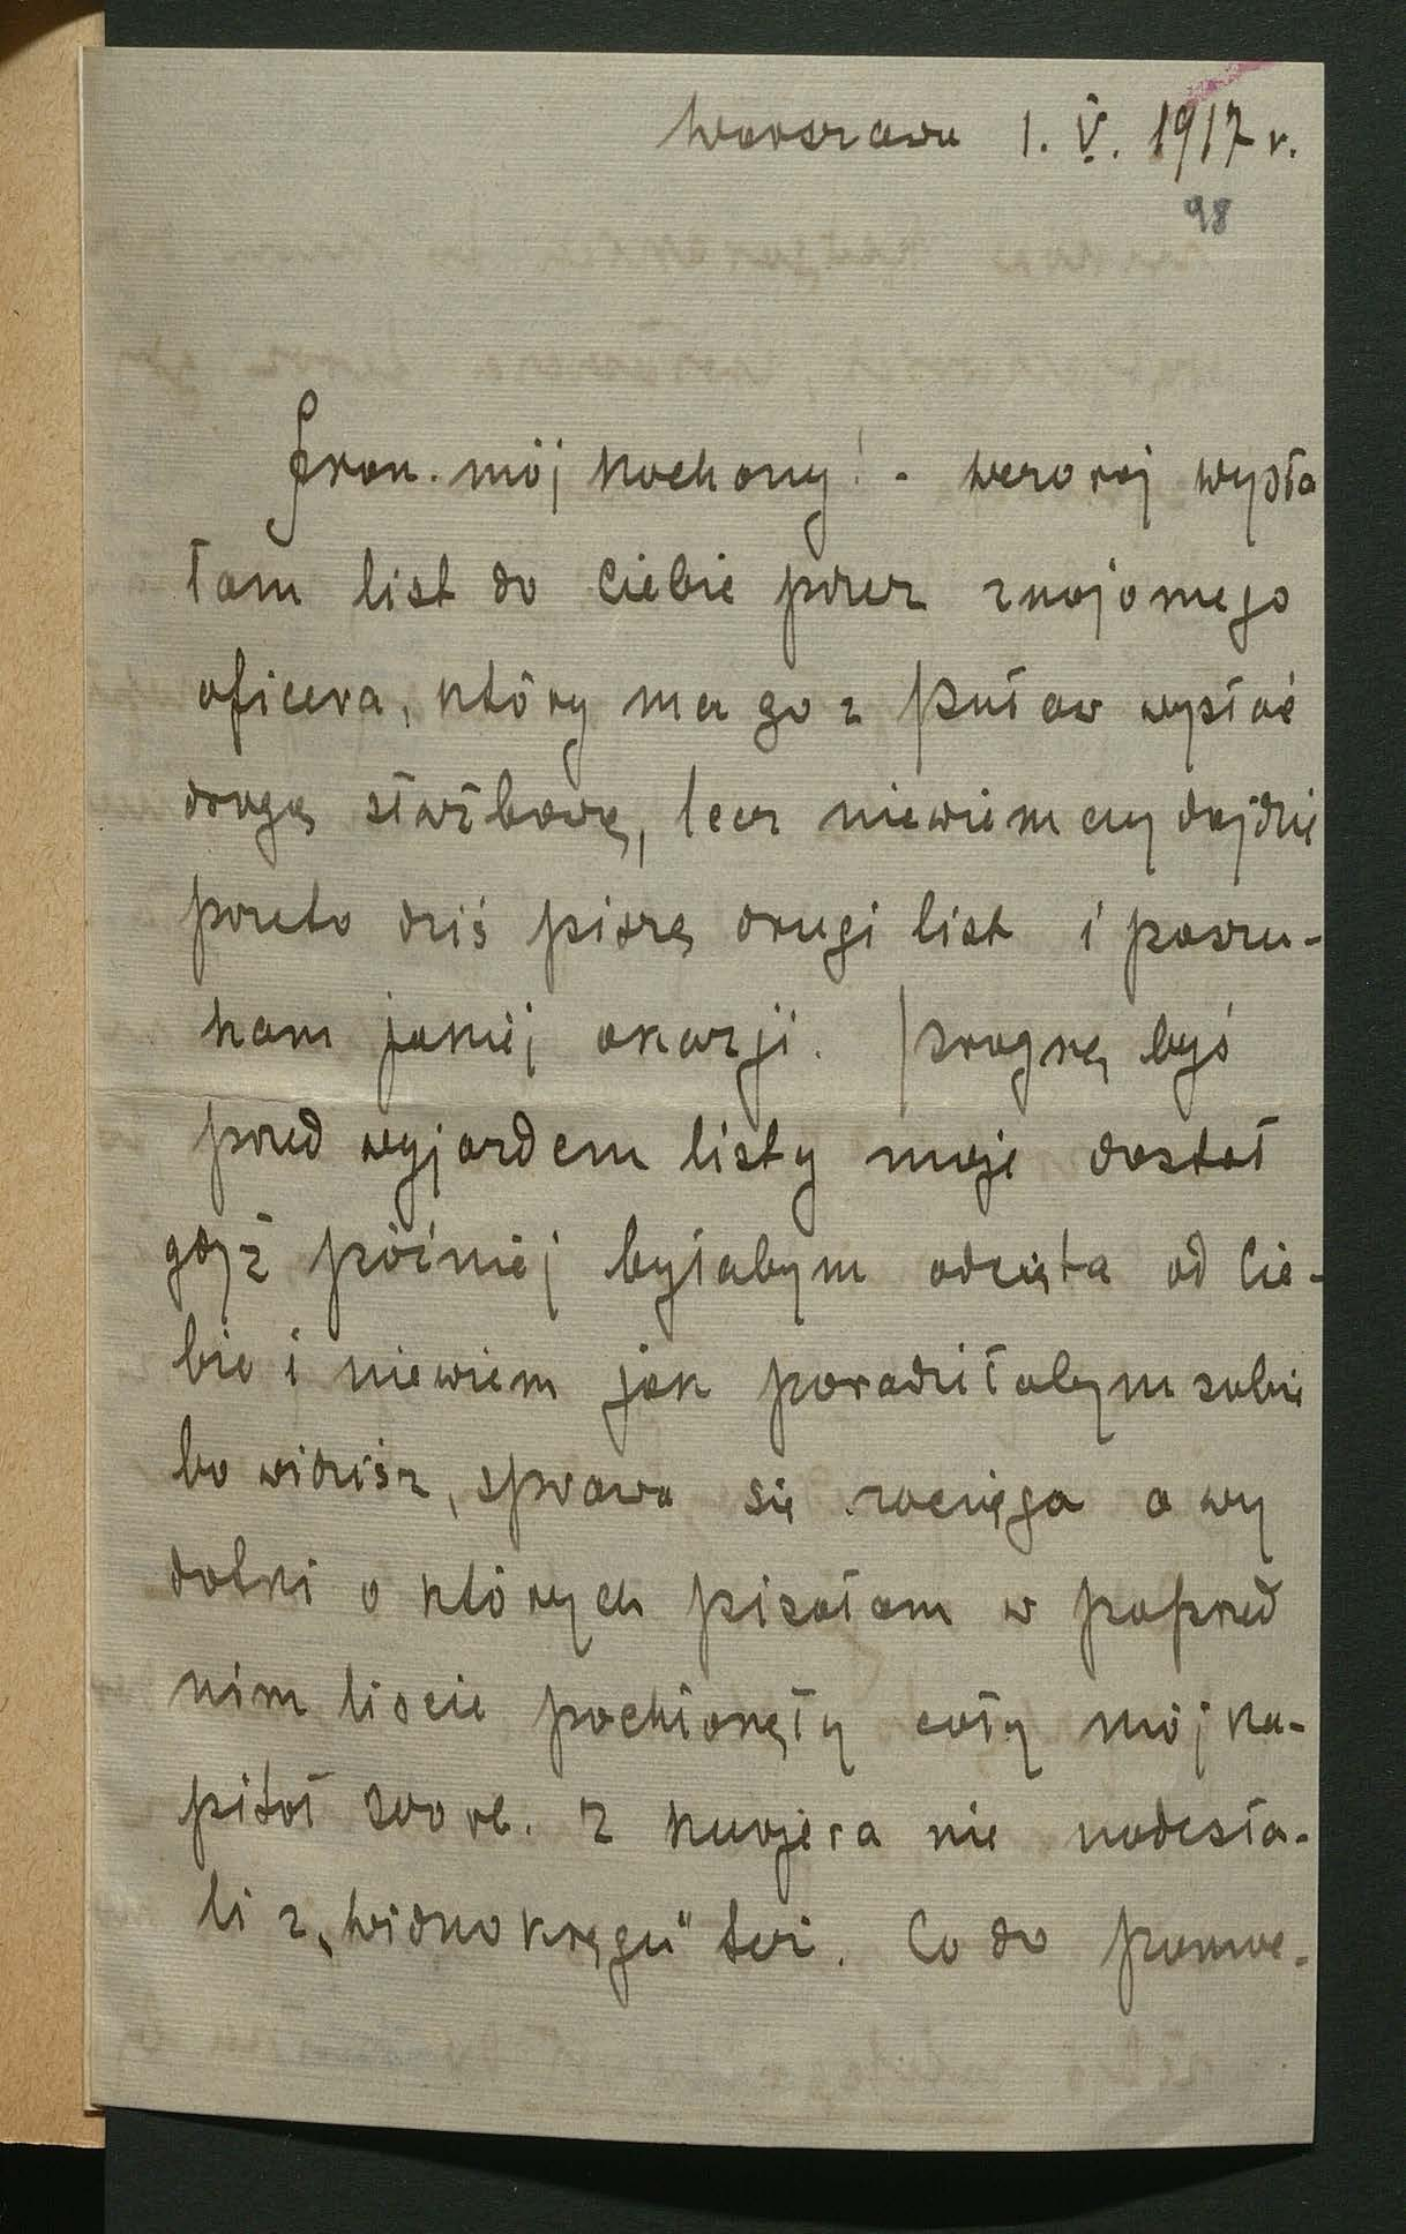 Warszawa 1. V. 1917 r.
98
Fran. mój kochany! - wczoraj wysła
łam list do Ciebie przez znajomego
oficera, który ma go z Puław wysłać
drogą służbową, lecz niewiem czy dojdzie
przeto dziś piszę drugi list i poszu-
kam jakiej okazji. Pragnę byś
przed wyjazdem listy moje dostał
gdyż później byłabym odcięta od Cie-
bie i niewiem jak poradziłabym sobie
bo widzisz, sprawa się zaciąga a wy
datki o których pisałam w poprzed
nim liscie pochłonęły cały mój ka-
pitał z Kurjera nie nadesła-
li z „Widnokręgu" też. Co do pomoc-